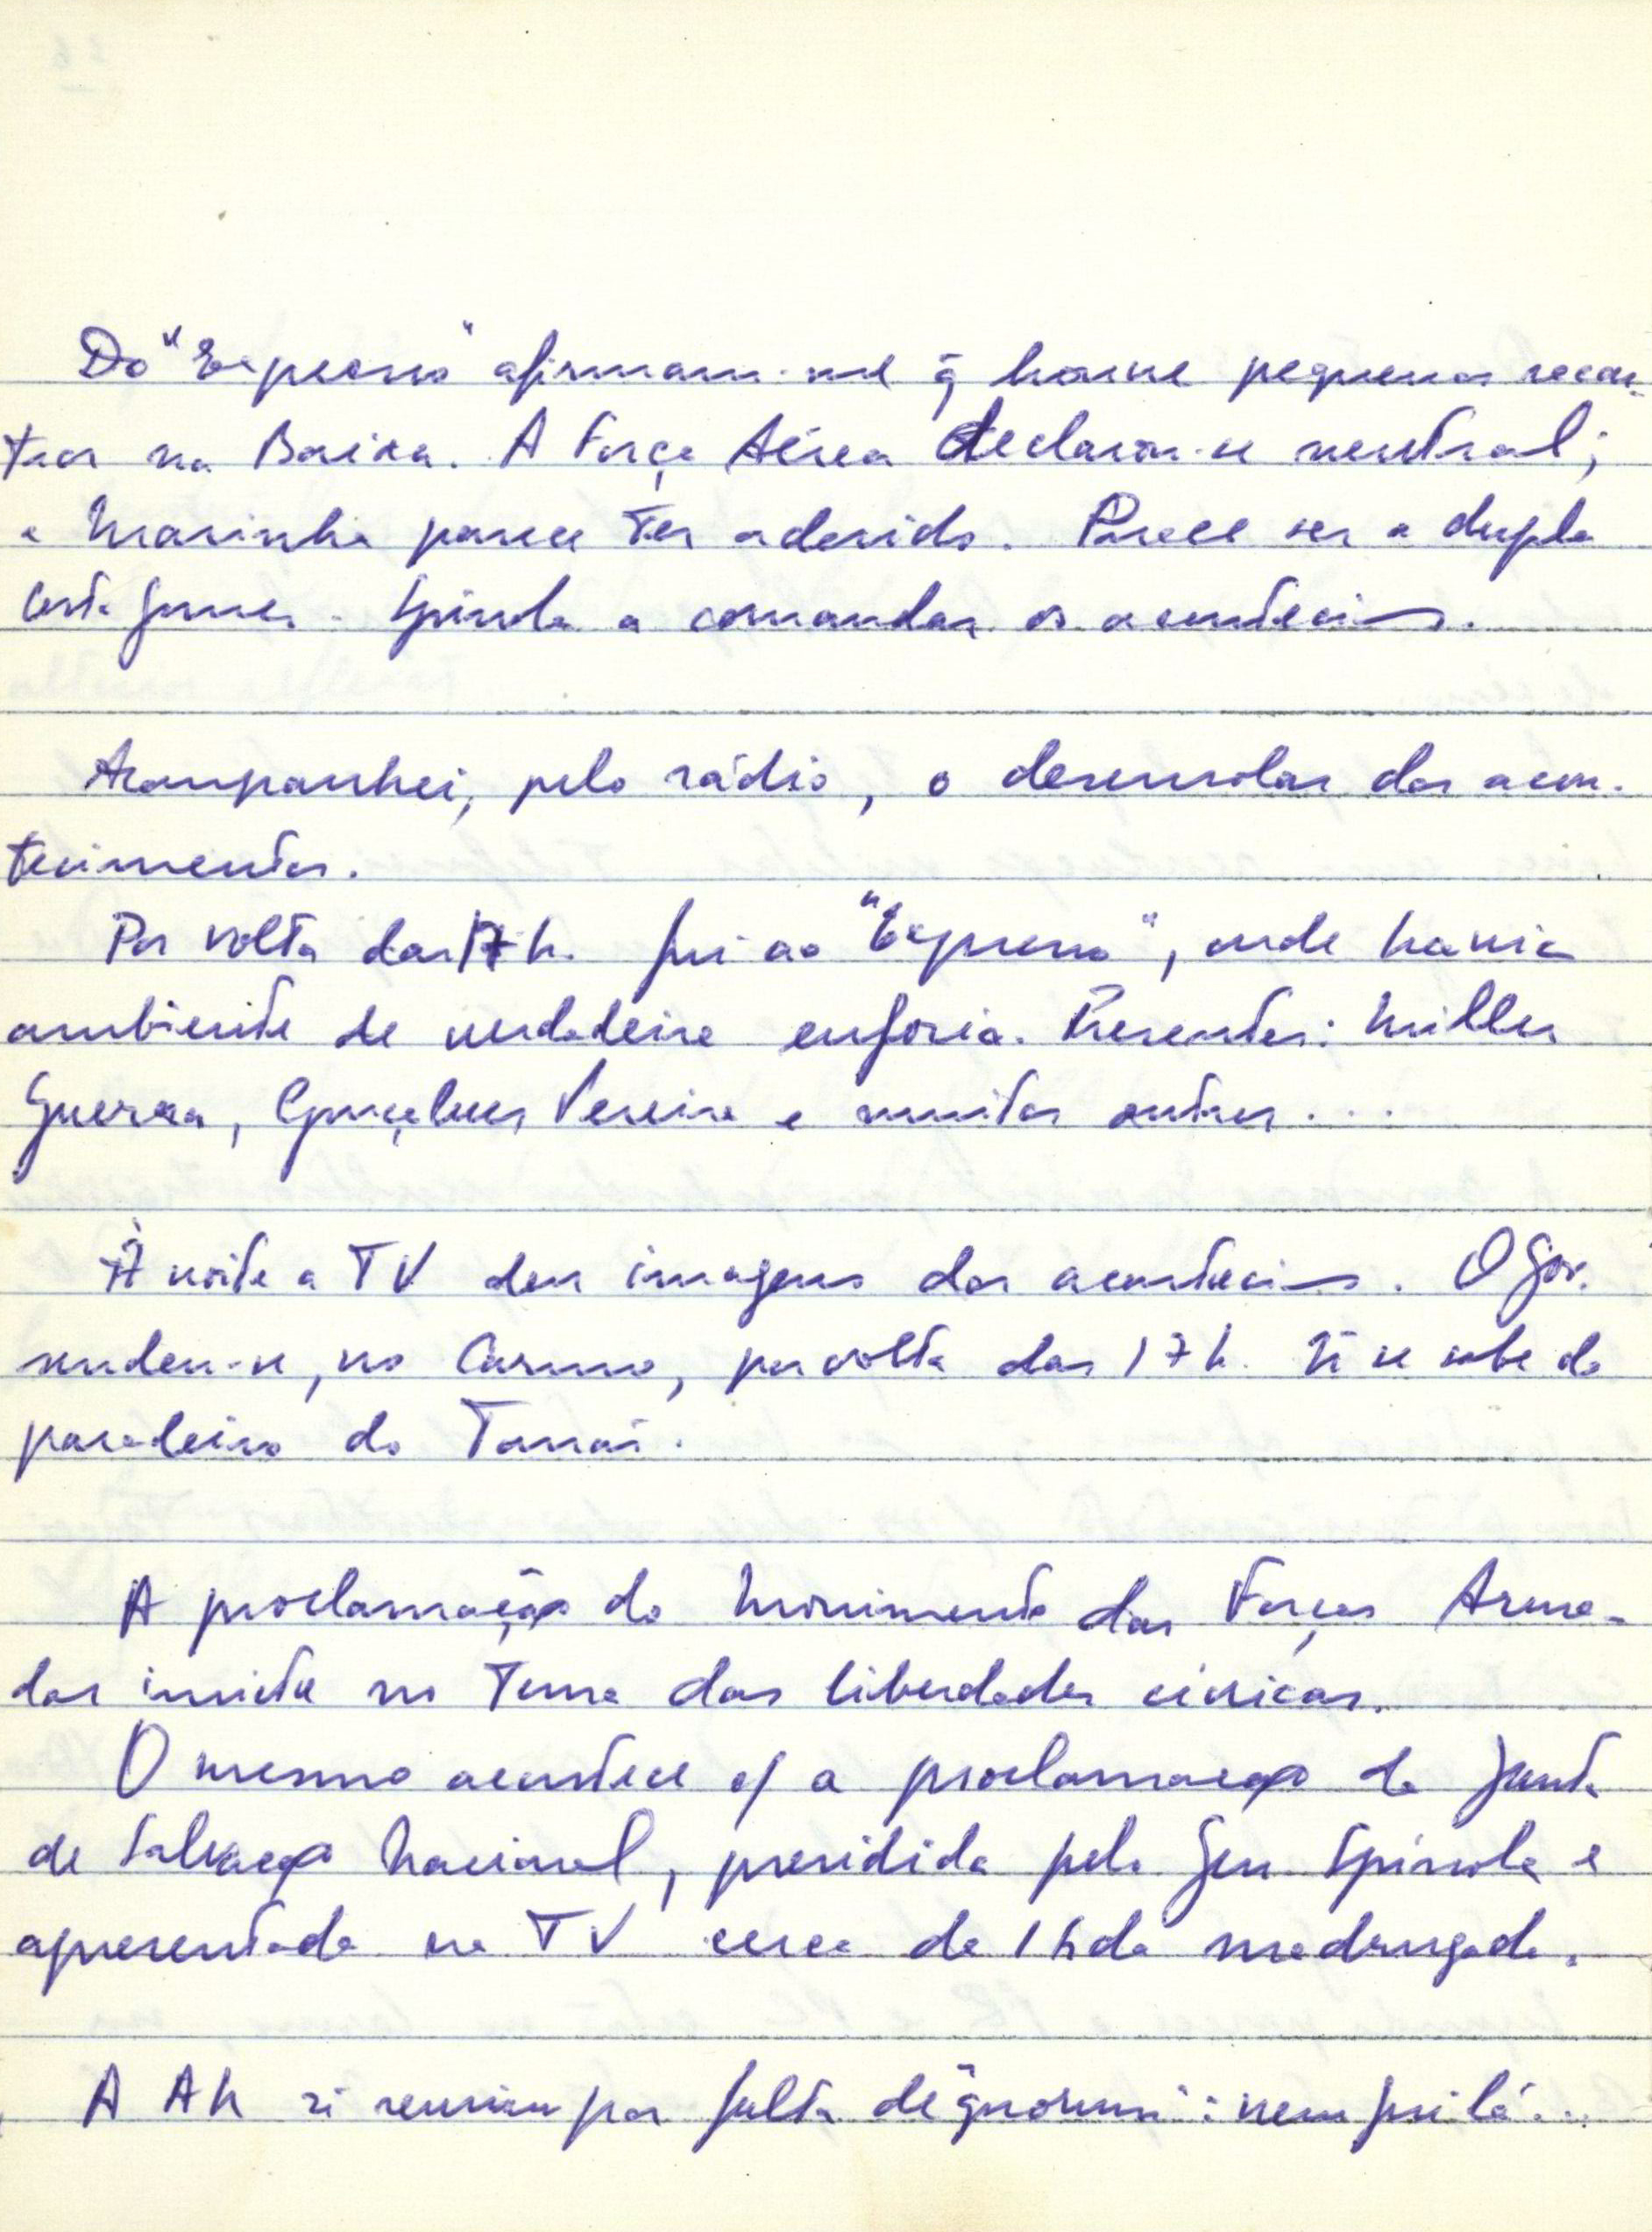 Do "Expresso" afirmam-me q̃ houve pequenos recon-
tros na Baixa. A Força Aérea declarou-se neutral;
a Marinha parece ter aderido. Parece ser a dupla
Costa Gomes - Spínola a comandar os acontecim.os.
Acompanhei, pelo rádio, o desenrolar dos acon-
tecimentos.
Por volta das 17 h. fui ao "Expresso", onde havia
ambiente de verdadeira euforia. Presentes: Miller
Guerra, Gonçalves Pereira e muitos outros...
À noite a TV deu imagens dos acontecim.os. O Gov.
rendeu-se, no Carmo, por volta das 17 h. Ñ se sabe do
paradeiro do Tomás.
A proclamação do Movimento das Forças Arma-
das insiste no tema das liberdades cívicas.
O mesmo acontece c/ a proclamação da Junta
de Salvação Nacional, presidida pelo Gen. Spínola e
apresentada na TV cerca da 1 h da madrugada.
A AN ñ reuniu por falta de "quorum": nem fui lá...